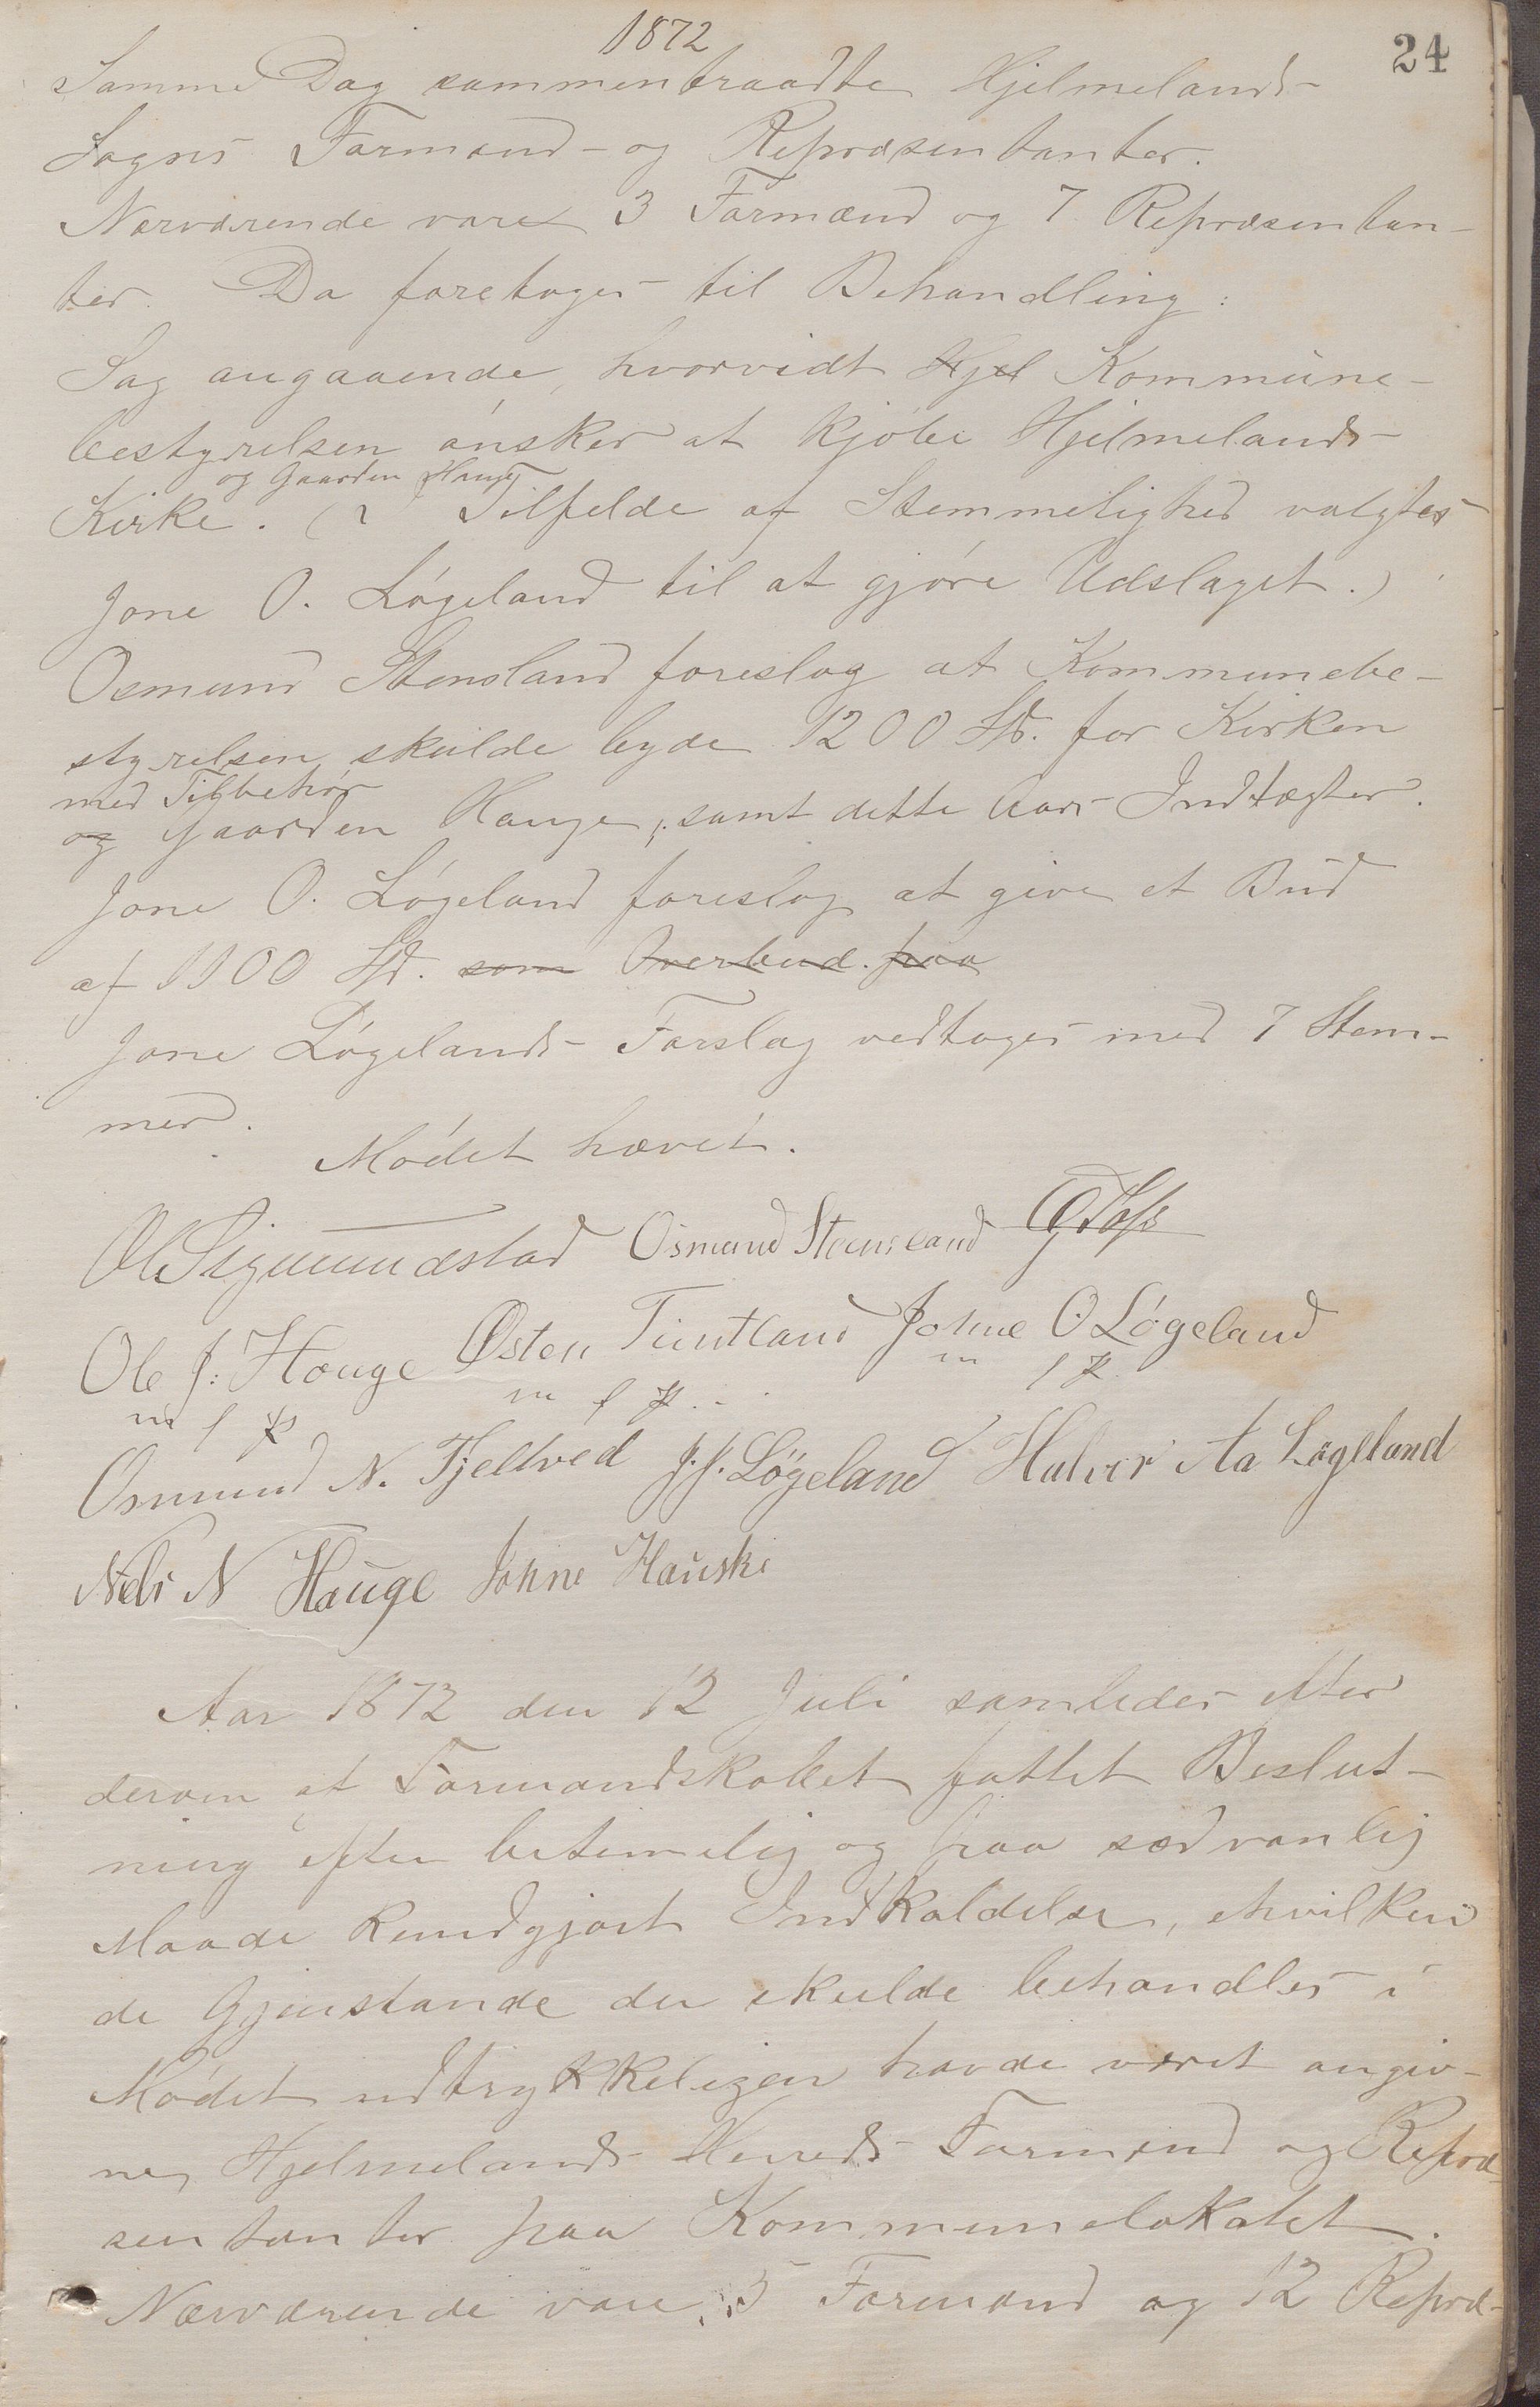 1872
24
Samme Dag sammentraadte Hjelmelands
Sogns Formænd- og Repræsentanter.
Nærværende vare 3 Formænd og 7 Repræsentan-
ter. Da foretoges til Behandling:
Sag angaaende, hvorvidt Hjel Kommune-
bestyrelsen ønsker at kjøbe Hjelmelands
og Gaarden Hauge
Kirke. (I Tilfelde af Stemmelighed valgtes
Jone O. Løgeland til at gjøre Udslaget.)
Osmund Stensland foreslog at Kommunebe-
styrelsen skulde byde 1200 Spd. for Kirken
med Tilbehør
og Gaarden Hauge, samt dette Aars Indtægter.
Jone O. Løgeland foreslog at give et Bud
af 1100 Spd. som Overbud paa
Jone Løgelands Forslag vedtoges med 7 Stem-
mer.
Mødet hævet.
Ol Sigmundstad Osmund Steensland
Ole J. Hauge Østen Tuntland Johne O Løgeland
m f P m f P. m f P
Osmund N. Fjelltved J. J. Løgeland Halvor Aa Løgeland
Nels N Hauge Johne Hauske
Aar 1872 den 12 Juli samledes efter
derom af Formandskabet fattet Beslut-
ning efter betimelig og paa sædvanlig
Maade kundgjort Indkaldelse, i hvilken
de Gjenstande der skulde behandles i
Mødet udtrykkeligen havde været angiv-
ne, Hjelmelands Herreds Formænd og Repræ
sentanter paa Kommunelokalet.
Nærværende vare 5 Formænd og 12 Repræ-